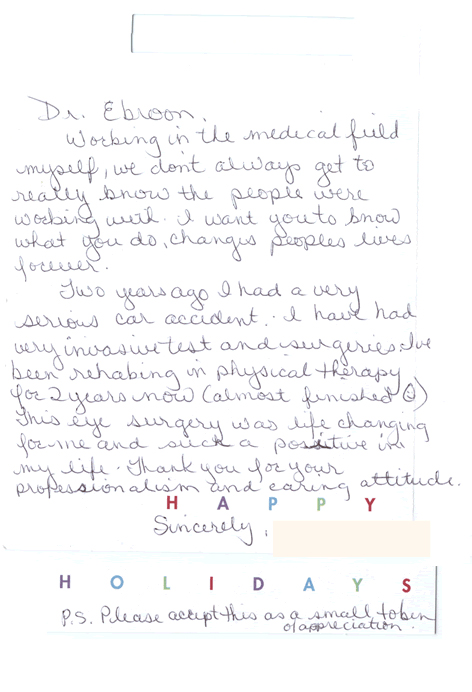 Dr. Ebroon,
Working in the medical field
myself, we don't always get to
really know the people were
working with. I want you to know
what you do, changes peoples lives
forever.
Two years ago I had a very
serious car accident. I have had
very invasive test and surgeries. I've
been rehabing in physical therapy
for 2 years now (almost finished ☺)
This eye surgery was life changing
for me and such a positive in
my life. Thank you for your
professionalism and caring attitude.
HAPPY
Sincerely,
HOLIDAYS
P.S. Please accept this as a small token
of appreciation.